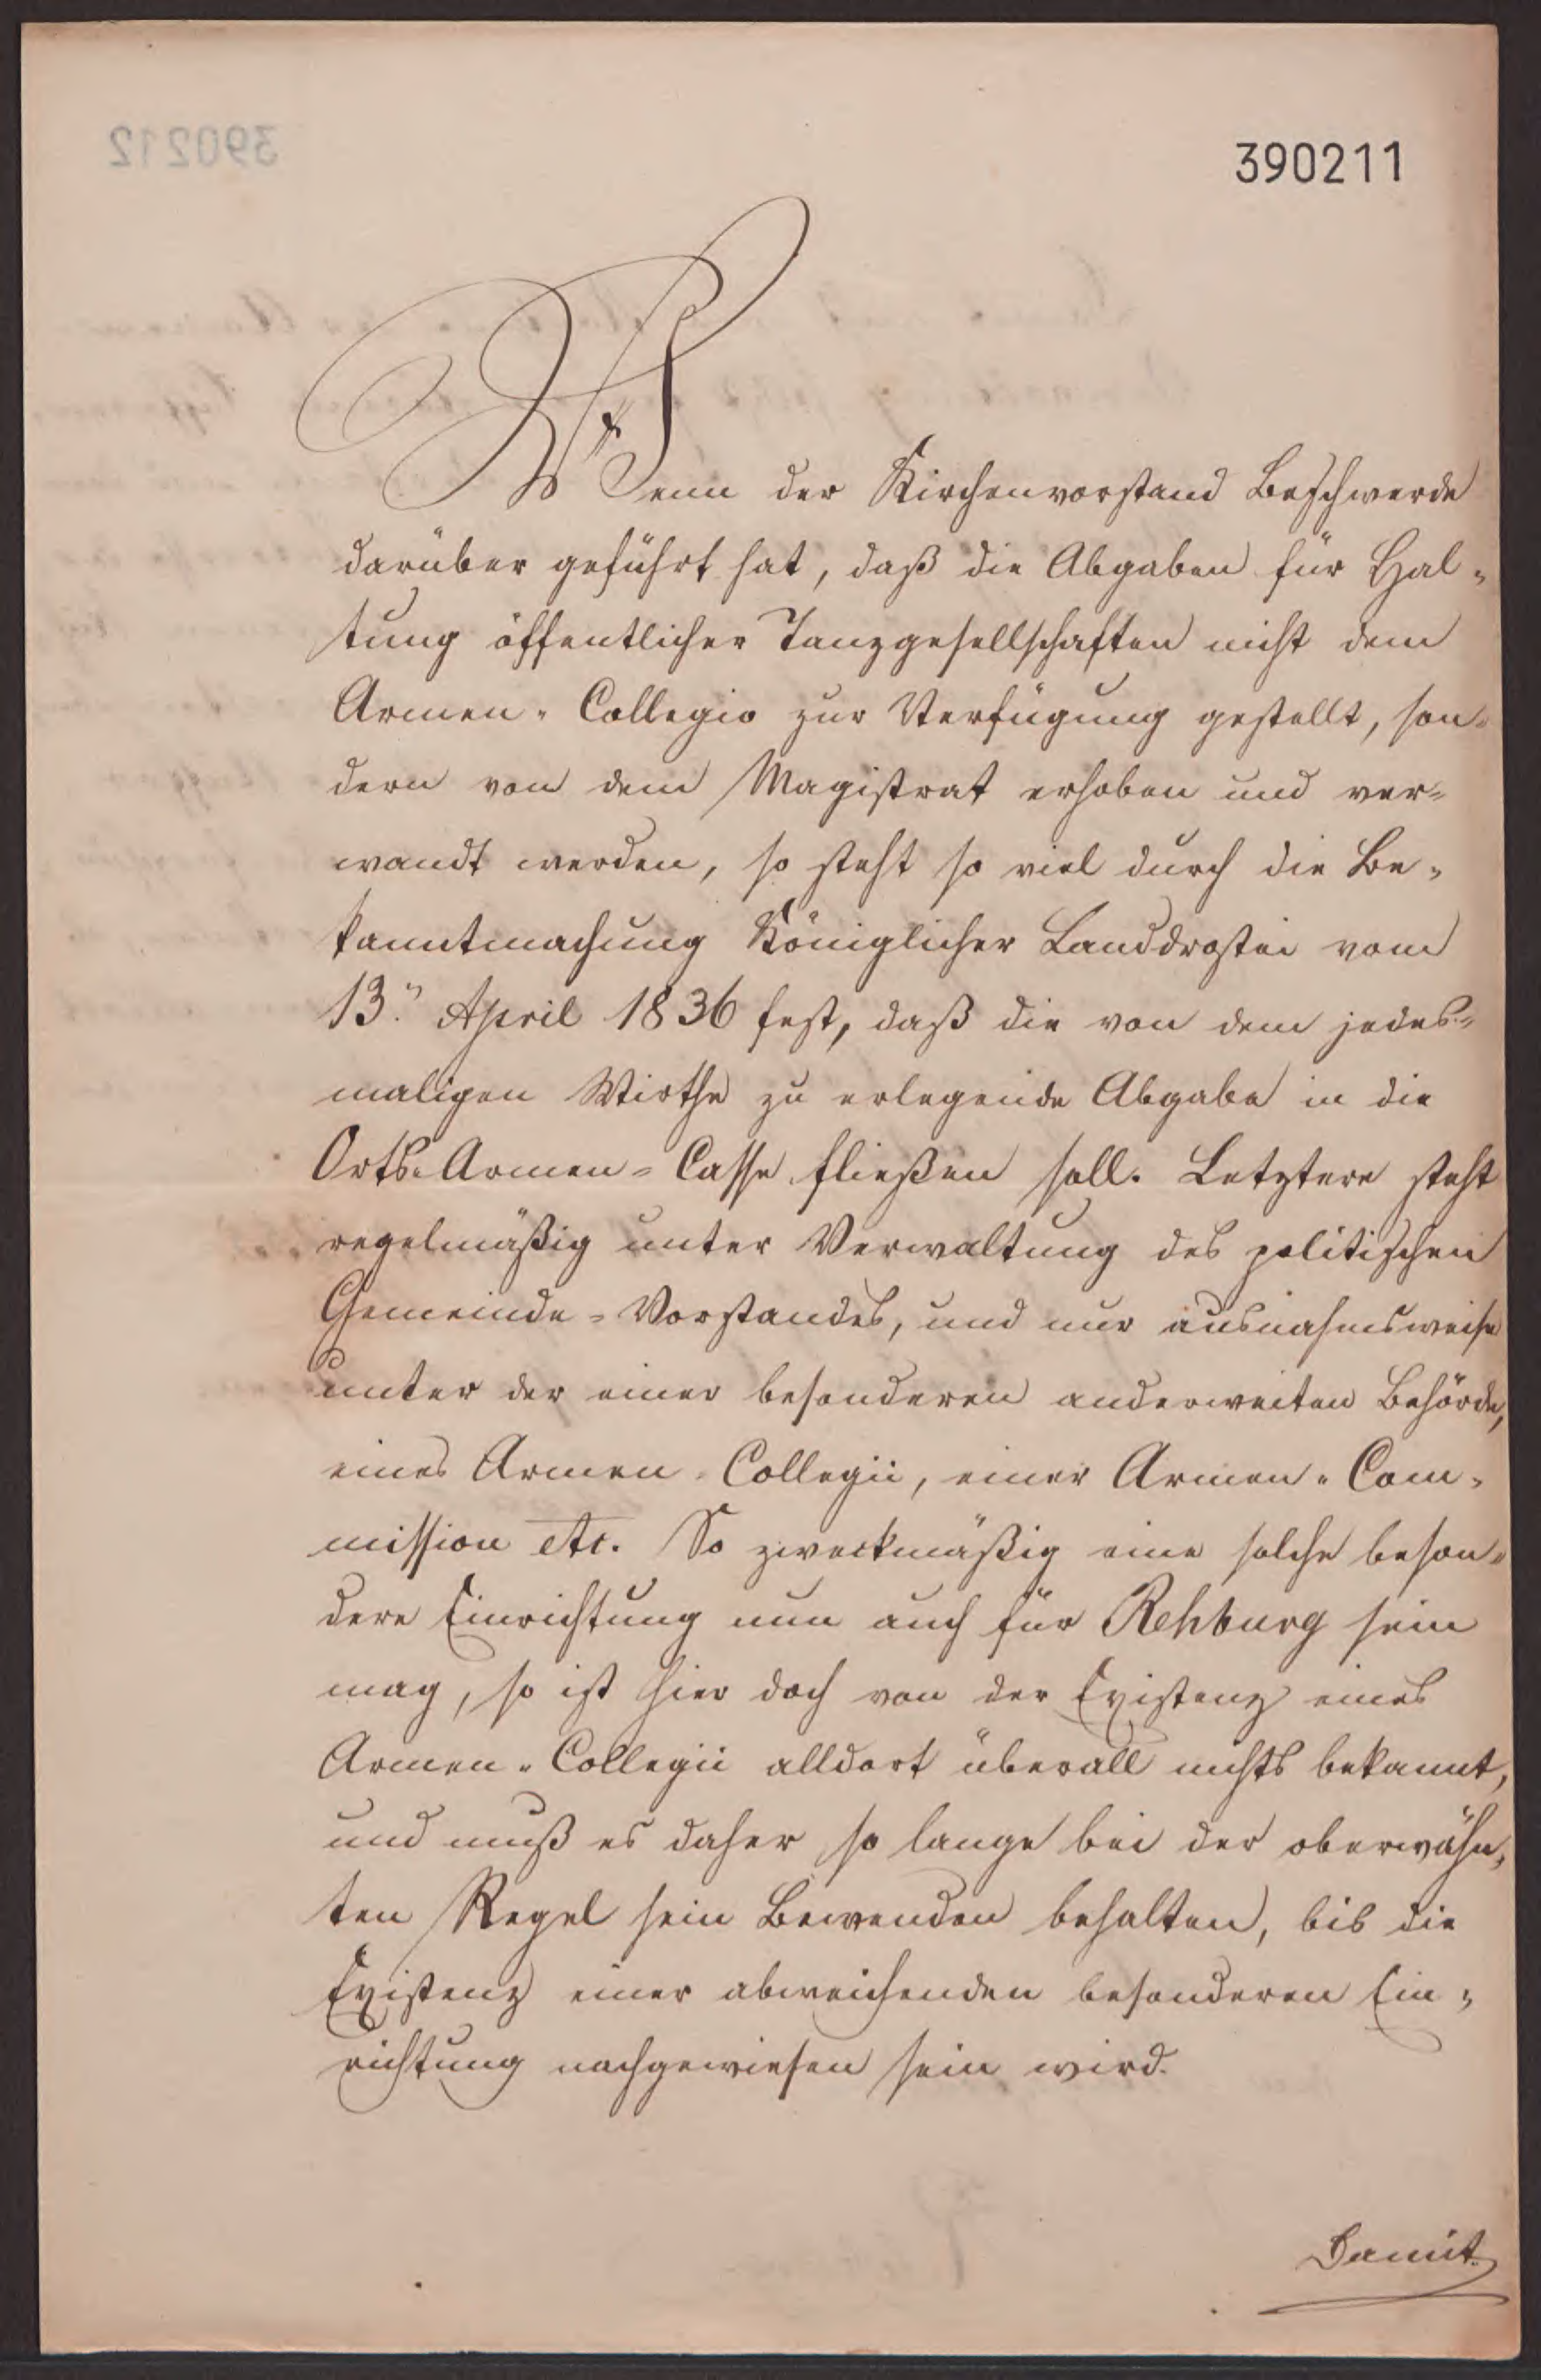 390211
Wenn der Kirchenvorstand Beschwerde
darüber geführt hat, daß die Abgaben für Hal-
tung öffentlicher Tanzgesellschaften nicht dem
Armen-Collegio zur Verfügung gestellt, son-
dern von dem Magistrat erhoben und ver-
wandt werden, so steht so viel durch die Be-
kanntmachung Königlicher Landdrostei vom
13. April 1836 fest, daß die von dem jedes-
maligen Wirthe zu erlegende Abgabe in die
Orts-Armen-Casse fließen soll. Letztere steht
regelmäßig unter Verwaltung des politischen
Gemeinde-Vorstandes, und nur ausnahmsweise
unter der einer besonderen anderweiten Behörde,
eines Armen-Collegii, einer Armen-Com-
mission etc. So zweckmäßig eine solche beson-
dere Einrichtung nun auch für Rehburg sein
mag, so ist hier doch von der Existenz eines
Armen-Collegii alldort überall nichts bekannt,
und muß es daher so lange bei der oberwähn-
ten Regel sein Bewenden behalten, bis die
Existenz einer abweichenden besonderen Ein-
richtung nachgewiesen sein wird.
Damit